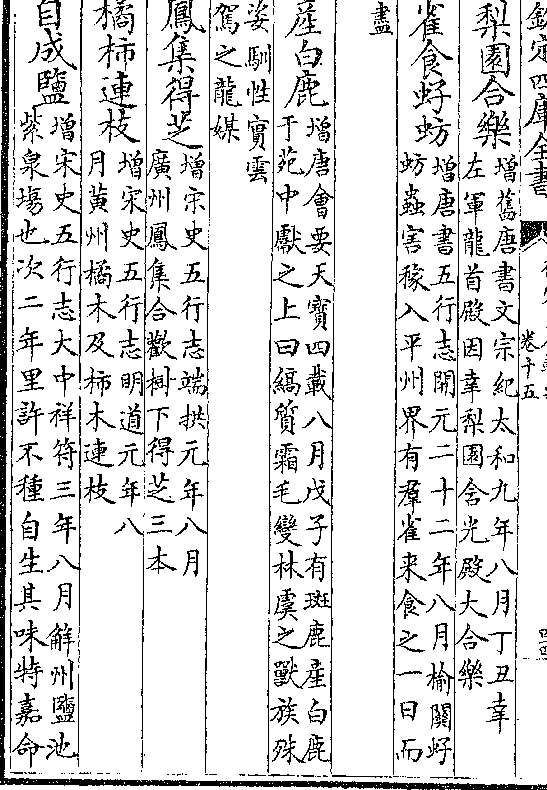 欽定四庫全書
卷十五
梨園合樂增舊唐書文宗紀太和九年八月丁丑幸
左軍龍首殿因幸梨園含光殿大合樂
雀食蚜蚄增唐書五行志開元二十二年八月榆關蚜
蚄蟲害稼入平州界有羣雀来食之一日而
盡
産白鹿增唐會要天寶四載八月戊子有斑鹿産白鹿
于苑中獻之上曰縞質霜毛變林虞之獸族殊
姿馴性實雲
駕之龍媒
鳳集得芝增宋史五行志端拱元年八月
廣州鳳集合歡樹下得芝三本
橘柿連枝增宋史五行志明道元年八
月黄州橘木及柿木連枝
自成鹽增宋史五行志大中祥符三年八月解州鹽池
紫泉塲也次二年里許不種自生其味特嘉命